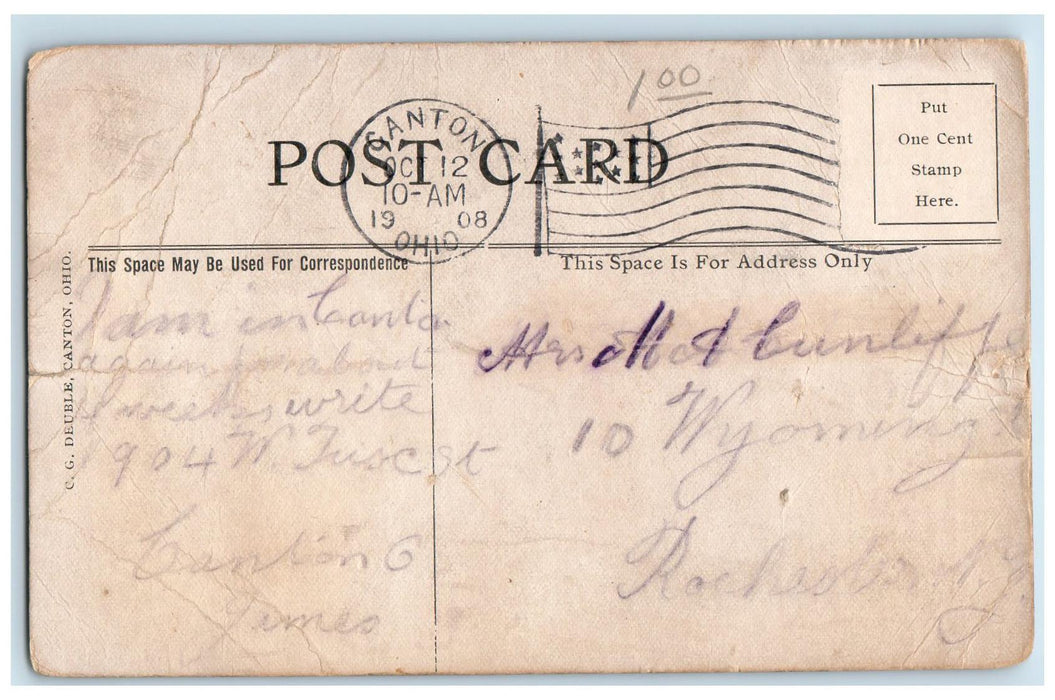 1 00
CANTON
OCT 12
10-AM
19 08
OHIO
POST CARD
Put
One Cent
Stamp
Here.
This Space May Be Used For Correspondence
This Space Is For Address Only
C. G. DEUBLE, CANTON, OHIO.
I am in Canton
again for about
weeks write
1904 W. Tusc St
Canton O
Mrs Cunliffe
10 Wyoming
Rochester N.Y.